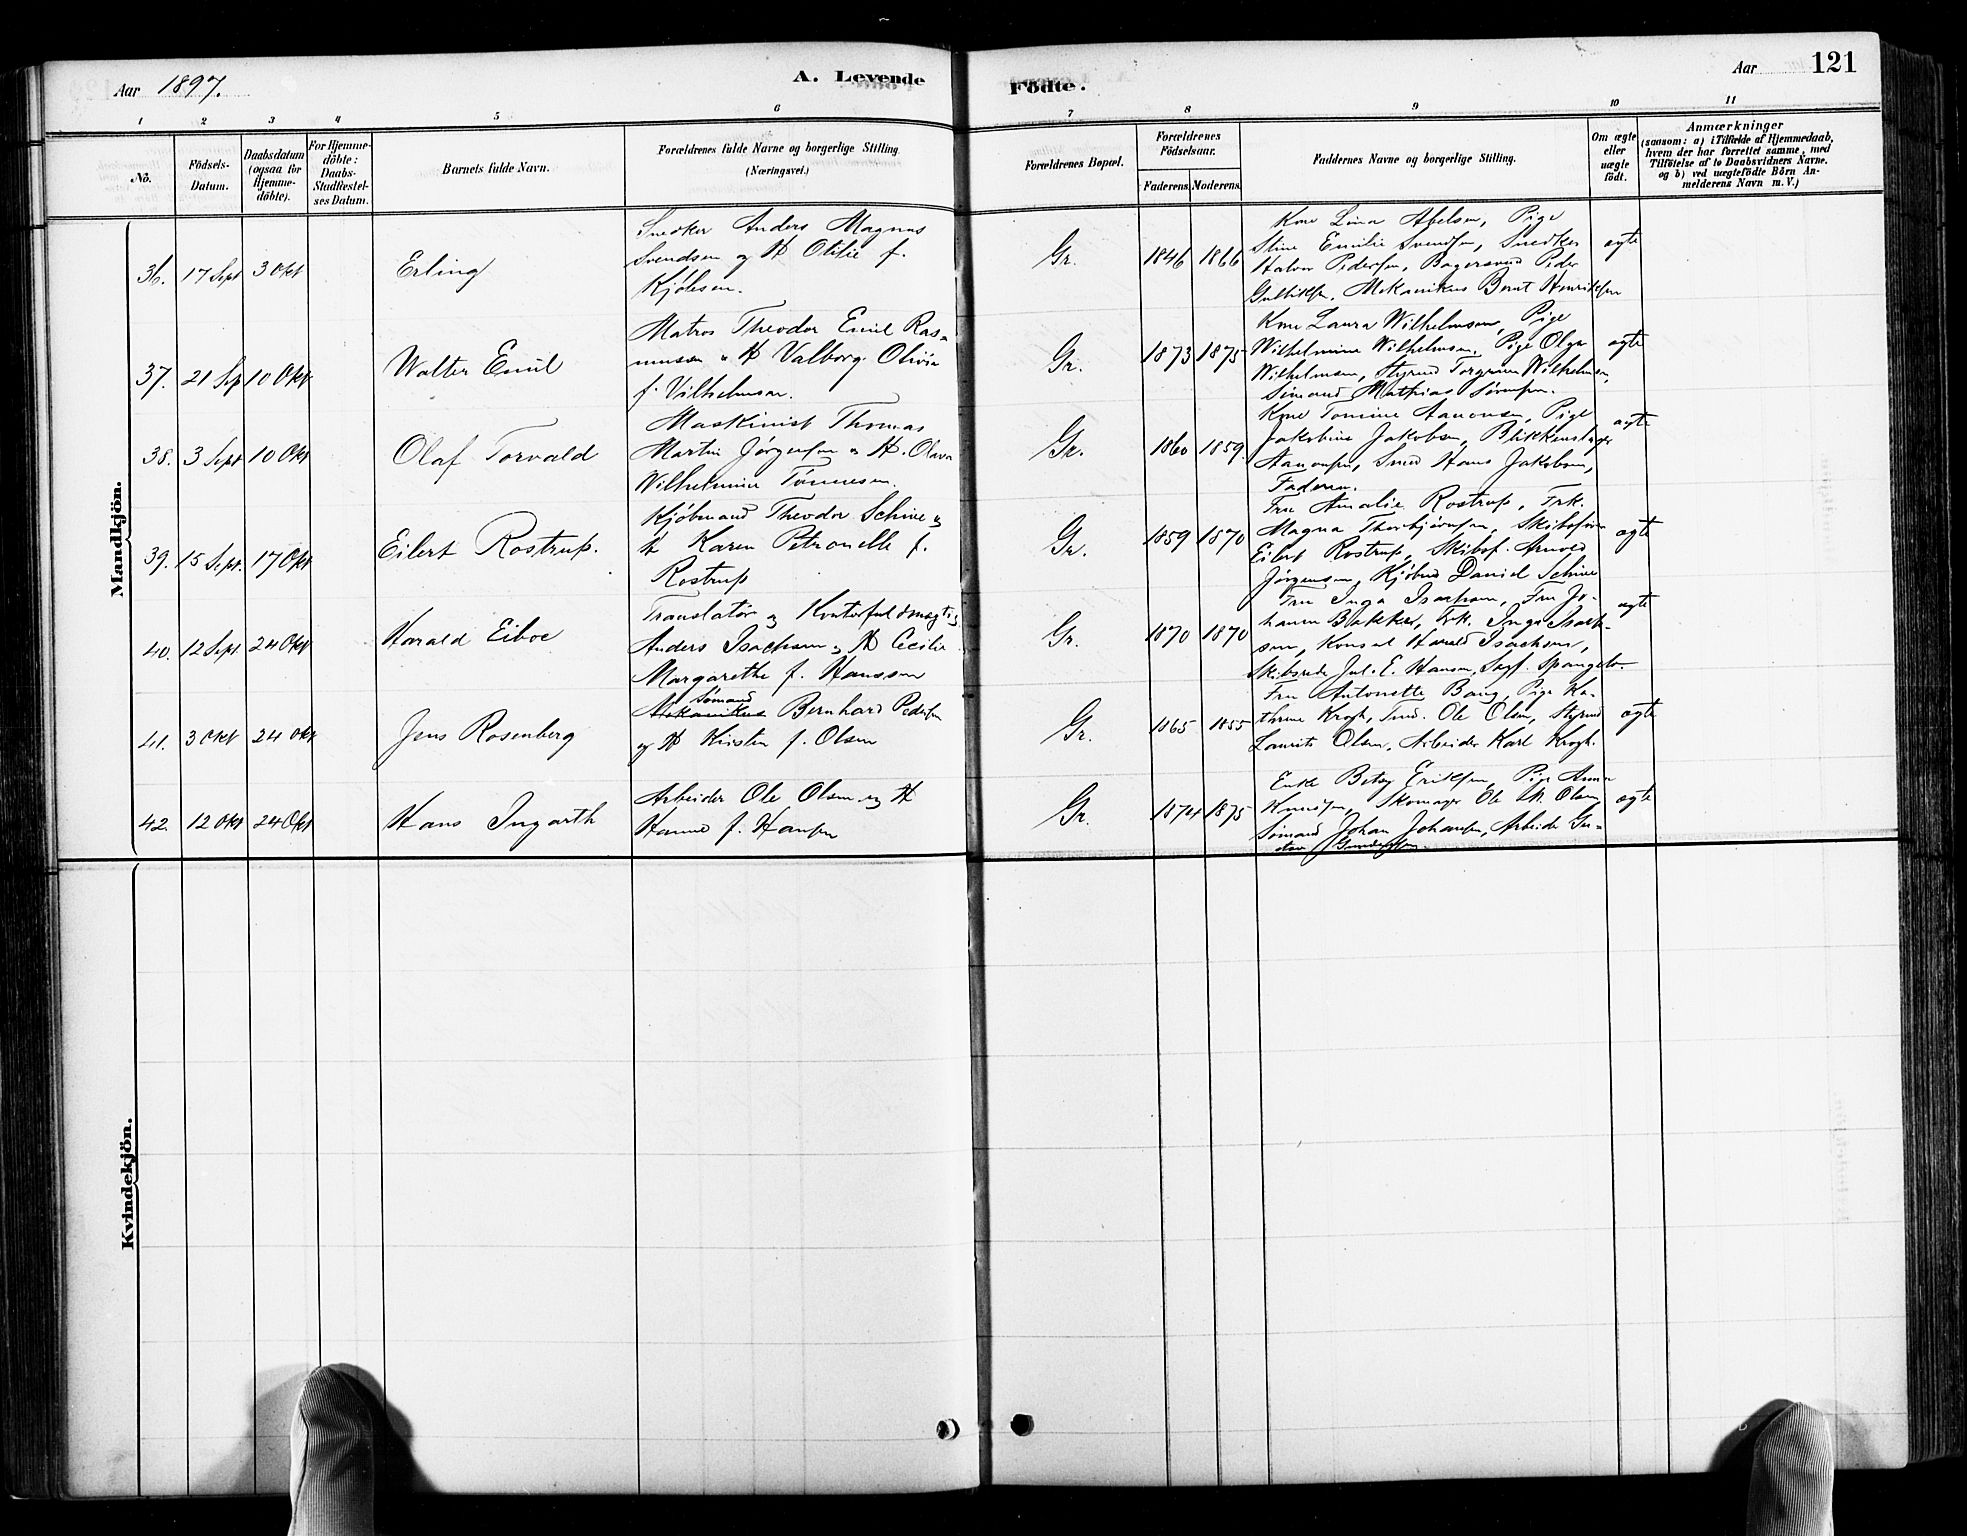 Aar 1897.
A. Levende
Födte.
Aar
121
1 2 3 4 5 6 7 8 9 10 11
No.
Födsels-
Datum.
Daabsdatum
(ogsaa for
Hjemme-
döbte).
For Hjemme-
döbte:
Daabs-
Stadfæstel-
ses Datum.
Barnets fulde Navn.
Forældrenes fulde Navne og borgerlige Stilling
(Næringsvei.)
Forældrenes Bopæl.
Forældrenes
Födselsaar.
Faderens. Moderens.
Faddernes Navne og borgerlige Stilling.
Om ægte
eller
uægte
födt.
Anmærkninger
(saasom: a) i Tilfælde af Hjemmedaab,
hvem der har forrettet samme, med
Tilföielse af to Daabsvidners Navne.
og b) ved uægtefödte Börn An-
melderens Navn m. V.)
Mandkjön.
36. 17 Sept 3 Okt
Erling
Snedker Anders Magnus
Svendsen og H Otilie f.
Kjölesen.
Gr. 1846 1866
Kone Lina Abelsen, Pige
Stine Emilie Svendsen, Snedker
Halvor Pedersen, Bagersvend Peder
Gulliksen, Mekanikus Bernt Henriksen
ægte
37. 21 Sp 10 Okt
Walter Emil
Matros Theodor Emil Ras-
mussen & H Valborg Olivia
f. Vilhelmsen.
Gr. 1873 1875
Kone Laura Wilhelmsen, Pige
Wilhelmine Wilhelmsen, Pige Olga
Wilhelmsen, Styrmd Torgrim Wilhelmsen,
Sömand Mathias Sörensen.
ægte
38. 3 Sept 10 Okt
Olaf Torvald
Maskinist Thomas
Martin Jørgensen & H. Olava
Wilhelmine Tönnesen.
Gr. 1860 1859.
Kone Tomine Aanonsen, Pige
Jakobine Jakobsen, Blikkenslager
Aanonsen, Smed Hans Jakobsen,
Faderen.
ægte
39. 15 Sept. 17 Okt
Eilert Rostrup.
Kjöbmand Theodor Schive og
H Karen Petronelle f.
Rostrup
Gr. 1859 1870
Fru Amalie Rostrup, Frk.
Magna Thorbjörnsen, Skibsförer
Eilert Rostrup, Skibsf. Arnved
Jørgensen, Kjöbmd Daniel Schive
ægte
40. 12 Sept 24 Okt
Harald Eiboe
Translatör og Kontorfuldmægtig
Anders Isachsen og H Cecilie
Margarethe f. Hanssen
Gr. 1870 1870
Fru Inga Isachsen, Fru Jo-
hanna Bakker, Frk. Inga Isach-
sen, Konsul Harald Isachsen,
Skibsrede Jul. E. Hansen, Sagf. Spangelo
ægte
41. 3 Okt 24 Okt
Jens Rosenberg
Sömand
Mekanikus Bernhard Pedersen
og H Kirsten f. Olsen
Gr. 1865 1855
Fru Antonette Bang, Pige Ka-
thrine Krogh, Ole Olsen, Styrmd
Laurits Olsen, Arbeider Karl Krogh.
ægte
42. 12 Okt 24 Okt
Hans Ingarth
Arbeider Ole Olsen og H
Hanne f. Hansen
Gr. 1874 1875
Enke Betsy Eriksen, Pige Anna
Knudsen, Skomager Ole M. Olsen,
Sömand Johan Johansen, Arbeider Gu-
stav Gundersen.
ægte
Kvindekjön.